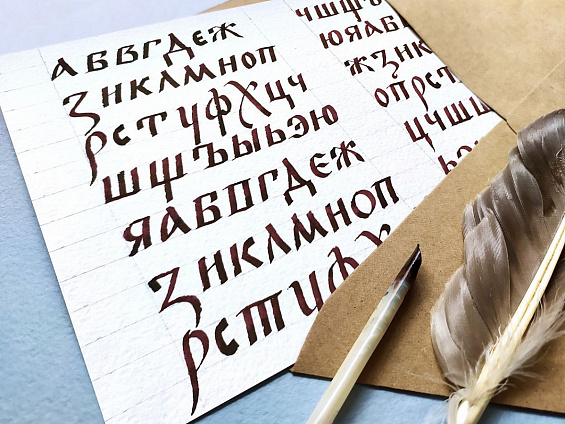 АБВГДЕЖ
ЗНКЛМНОП
РСТУФХЦЧ
ШЩЪЫЬЭЮ
ЯАБВГДЕЖ
ЗНКЛМНОП
РСТУФХ
ЧШЩЪ
ЮЯАБ
ЖЗНК
ОПРСТ
ЦЧШЩ